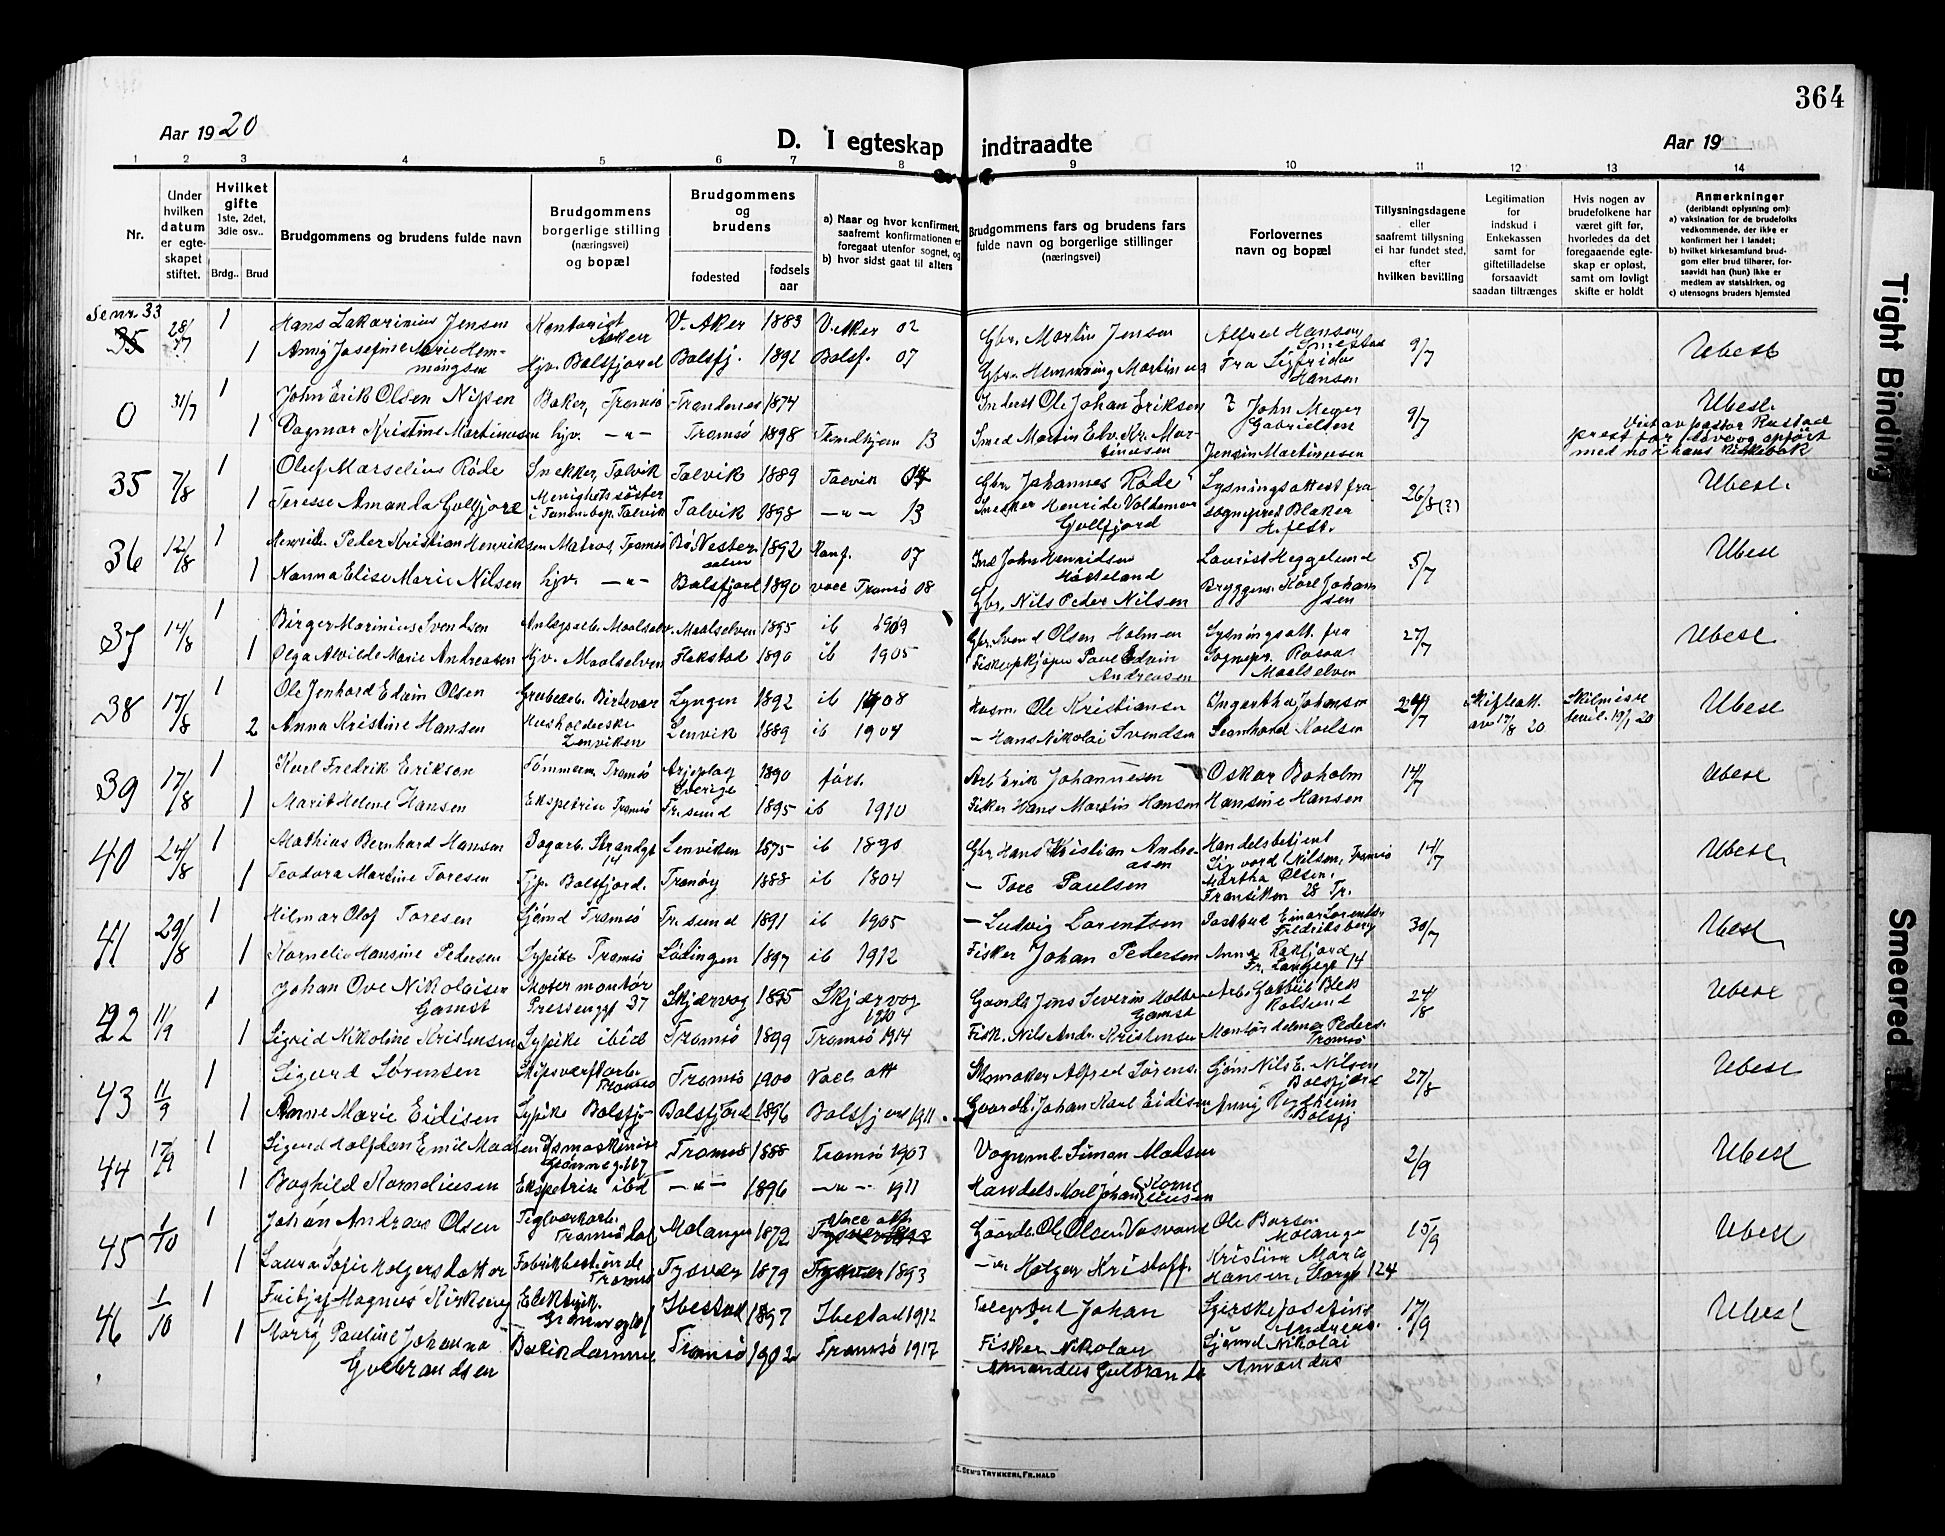 364
Aar 1920
D. I egteskap indtraadte
Aar 19
1 2 3 4 5 6 7 8 9 10 11 12 13 14
Nr.
Under hvilken datum er egteskapet stiftet.
Hvilket gifte 1ste, 2det, 3die osv..
Brdg.. Brud
Brudgommens og brudens fulde navn
Brudgommens borgerlige stilling (næringsvei) og bopæl
Brudgommens og brudens
fødested
fødsels aar
a) Naar og hvor konfirmert, saafremt konfirmationen er foregaat utenfor sognet, og
b) hvor sidst gaat til alters
Brudgommens fars og brudens fars fulde navn og borgerlige stillinger (næringsvei)
Forlovernes navn og bopæl
Tillysningsdagene eller saafremt tillysning ei har fundet sted, efter hvilken bevilling
Legitimation for indskud i Enkekassen samt for giftetilladelse forsaavidt saadan tiltrænges
Hvis nogen av brudefolkene har været gift før, hvorledes da det foregaaende egteskap er opløst, samt om lovligt skifte er holdt
Anmerkninger (deriblandt oplysning om):
a) vaksination for de brudefolks vedkommende, der ikke er konfirmert her i landet;
b) hvilket kirkesamfund brudgom eller brud tilhører, forsaavidt han (hun) ikke er medlem av statskirken, og
c) utensogns bruders hjemsted
Se nr. 33
35 28/7 1 Hans Zakarinius Jensen Kontorist Aker V. Aker 1883 V. Aker 02 Gbr. Martin Jensen Alfred Hansen Smestad 9/7 Ubesl
1 Anny Josefine Marie Hemmingsen Hjv. Balsfjord Balsfj. 1892 Balsf. 07 Gbr. Hemming Martinus Fra Sigfrida Hansen
0 31/7 1 John Erik Olsen Nipen Baker, Tromsø Trondenes 1874 Inderst Ole Johan Eriksen John Meyer Gabrielsen 9/7 Ubesl.
1 Dagmar Kristine Martinusen hjv. -"- Tromsø 1898 13 Smed Martin Martinusen Jensin Martinusen
35 7/8 1 Oluf Marselius Røde Snekker, Talvik Talvik 1889 Talvik 04 Gbr. Johannes Røde Lysningsattest fra 26/8 (?) Ubesl.
1 Teresse Amanda Gullfjord Menighetssøster Talvik Talvik 1898 -"- 13 Snekker Henrik Valdemar Gullfjord sognepres Blaker
36 12/8 1 Henrik Peder Kristian Henriksen Matros, Tromsø Bø Vesteraalen 1892 Konf. 07 Ind. John Henriksen Laurits Heggelund 5/7 Ubesl
1 Nanna Elise Marie Nilsen hjv. -"- Balsfjord 1890 vacc Tromsø 08 Gbr. Nils Peder Nilsen Bryggem. Karl Johansen
37 14/8 1 Birger Marinius Svendsen Anlegsarb. Maalselv. Maalselven 1895 ib 1909 Gbr. Svend Olsen Holmen Lysningsatt. fra 27/7 Ubesl
1 Olga Alvilde Marie Andreasen Hjv. Maalselven Flakstad 1890 ib 1905 Fiskeopkjøper Paul Edvin Andreasen Sognepr. Maalselven
38 17/8 1 Ole Jenhard Edvin Olsen Grubearb. Birtevar Lyngen 1892 ib 1908 Husm. Ole Kristiansen Johansen 24/7 Skifteatt. av 17/8 20 Skilmisse bevil. 19/1 20 Ubesl
2 Anna Kristine Hansen Husholderske Lenviken Lenvik 1889 ib 1904 - Hans Nikolai Svendsen
39 17/8 1 Karl Fredrik Erikson Tømmerm. Tromsø Arjeplog Sverige 1890 Arb. Erik Johannesen Oskar Boholm 14/7 Ubesl
1 Marit Helene Hansen Ekspetrise Tromsø Tr.sund 1895 ib 1910 Fisker Hans Martin Hansen Hansine Hansen
40 24/8 1 Mathias Bernhard Hansen Bogarb. Strandgt 14 Lenviken 1875 ib 1890 Gbr Hans Kristian Andreasen Handelsbetjent Sigvard Nilsen, Tromsø 14/7 Ubesl
1 Teodora Martine Toresen Balsfjord. Tranøy 1888 ib 1804 - Tore Paulsen Martha Olsen, 28 Tr.
41 29/8 1 Hilmar Olof Toresen Sjømd Tromsø Tr.sund 1891 ib 1905 - Ludvig Lorentsen Fredriksberg 30/7 Ubesl
1 Kornelie Hansine Pedersen Sypike Tromsø Lødingen 1897 ib 1912 Fisker Johan Pedersen Anna 14
42 11/9 1 Johan Ove Nikolaisen Gamst Motormontør 37 Skjærvøg 1895 Skjærvøg 1910 Gaardb Jens Severin Gamst 24/8 Ubesl
1 Sigrid Nikoline Kristensen Sypike ibid Tromsø 1899 Tromsø 1914 Fisk. Nils Andr. Kristensen Montør Peders. Tromsø
43 11/9 1 Sigurd Sørensen Skipsværftarb. Tromsø Tromsø 1900 Vacc att Skomaker Alfred Sørens. Sjøm Nils E. Nilsen Balsfjord 27/8 Ubesl
1 Anne Marie Eidisen Sypike Balsfj. Balsfjord 1896 Balsfjord 1911. Gaardb. Johan Karl Eidisen Anny Balsfj
44 17/9 1 Sigurd Halfdan Emil Madsen Grønneg. 117 Tromsø 1888 Tromsø 1903 Vognmd. Simon Madsen 2/9 Ubesl
1 Baghild Korneliusen Ekspetrise ibid -"- 1896 -"- 1911 Handels Johan Korneliusen
45 1/10 1 Johan Andreas Olsen Teglverkarb. Tromsødal Malangen 1872 Vacc att. Gaardb. Ole Olsen Ole Malangen 15/9 Ubesl
1 Laura Sofie Holgersdatter Fabrikbestiende Tromsø Tysvær 1879 Tysvær 1893 -"- Holger Kristoff. Kristine Marie Hansen, Storgt 124
46 1/10 1 Fritjof Magnus Kirkeng Elektrik. Ibestad 1897 Ibestad 1912 Johan Josefine Andreas. 17/9 Ubesl
1 Mary Pauline Johanna Gulbrandsen Tromsø 1902 Tromsø 1917 Fisker Nikolay Amandus Gulbrands Sjømd Nikolai Amandus
TRYKKERI, FR.HALD
Tight Binding
Smeared